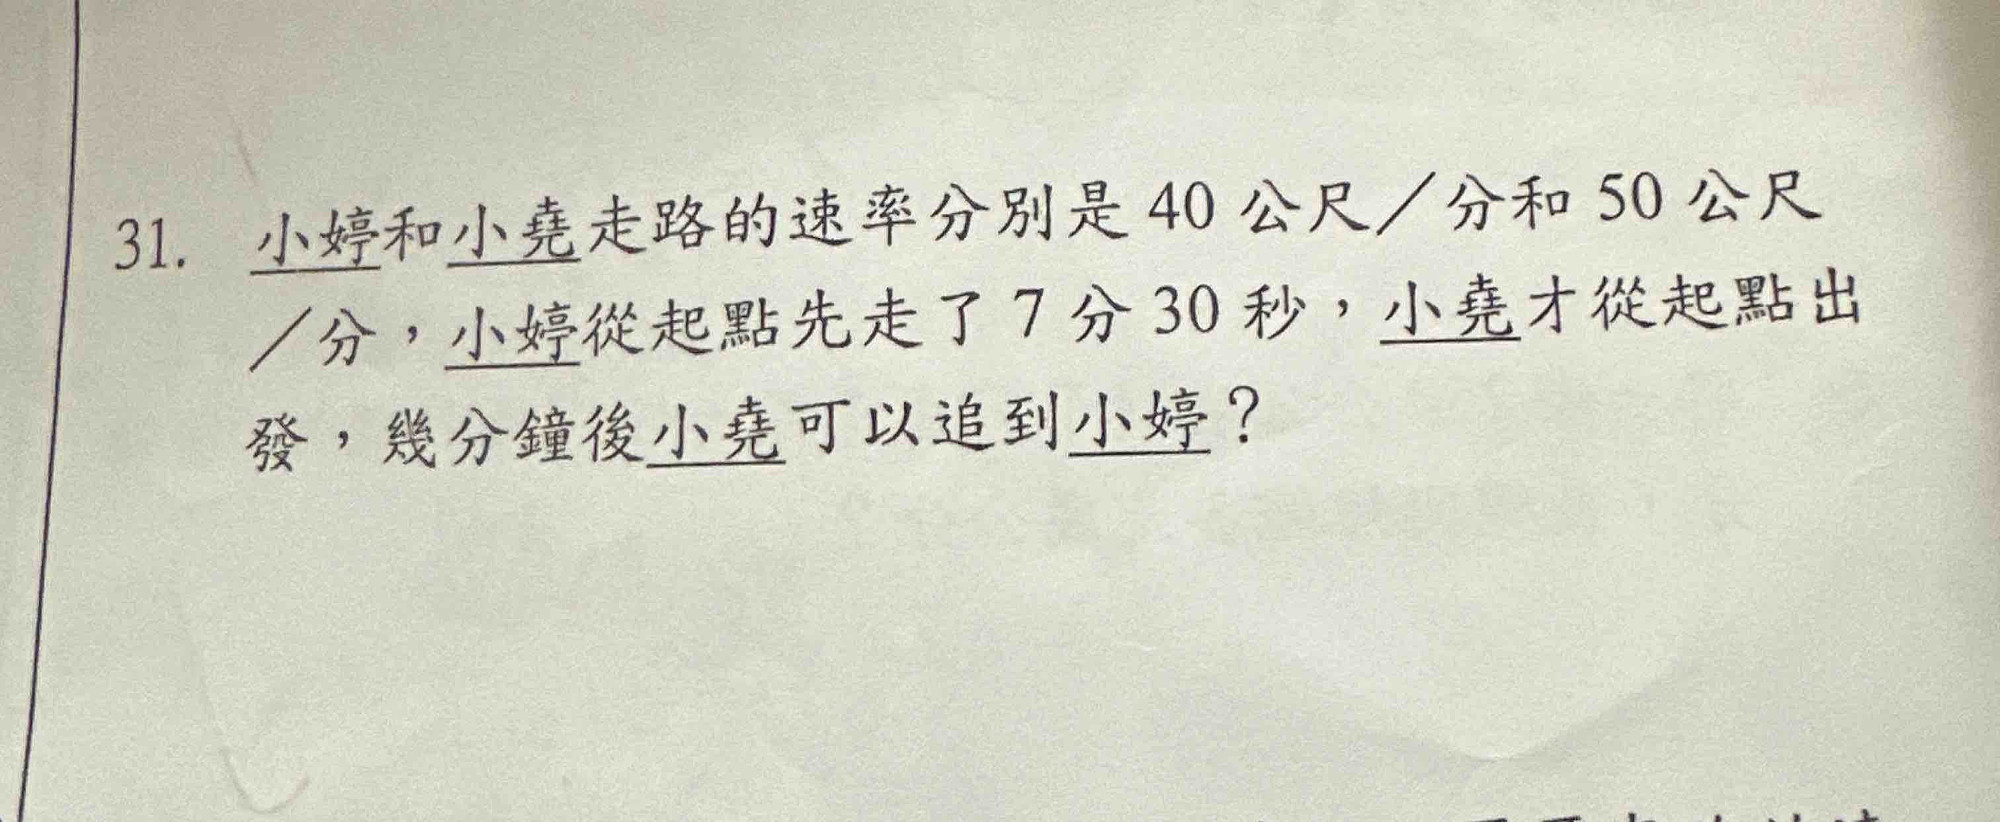 31. 小婷和小堯走路的速率分別是 40 公尺／分和 50 公尺
／分，小婷從起點先走了 7 分 30 秒，小堯才從起點出
發，幾分鐘後小堯可以追到小婷？